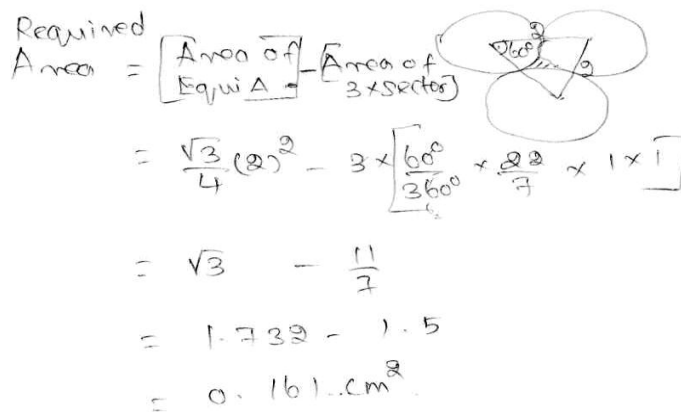 Required
Area = [Area of Equi Δ] - [Area of 3 × sector]
= √3/4 (2)² - 3 × [60°/360° × 22/7 × 1 × 1]
= √3 - 11/7
= 1.732 - 1.5
= 0.161 cm²
2
60°
2